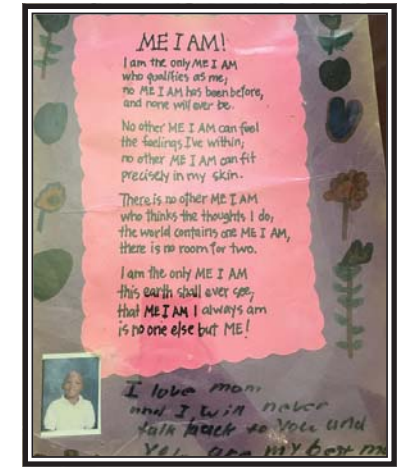 ME I AM!
I am the only ME I AM
who qualifies as me;
no ME I AM has been before,
and none will ever be.
No other ME I AM can feel
the feelings I've within;
no other ME I AM can fit
precisely in my skin.
There is no other ME I AM
who thinks the thoughts I do;
the world contains one ME I AM,
there is no room for two.
I am the only ME I AM
this earth shall ever see;
that ME I AM I always am
is no one else but ME!
I love mom
and I will never
talk back to you and
You are my best m